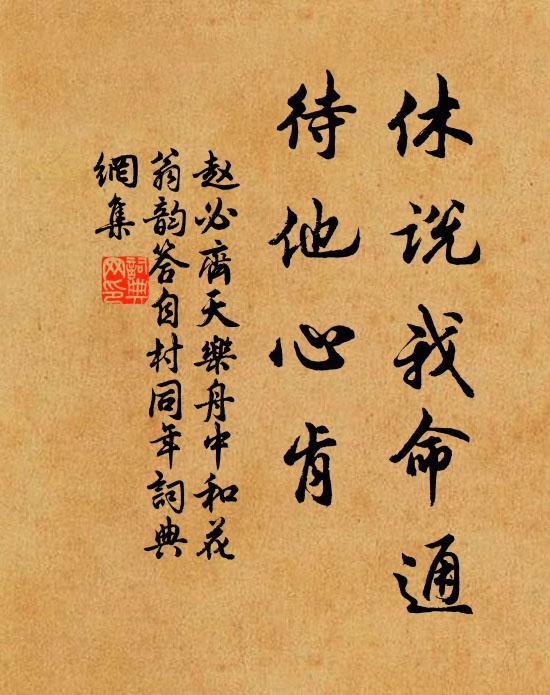 休说我命通
待他心肯
赵必齐天樂舟中和花
翁韵答自村同年詞典
網集
詞典
网印